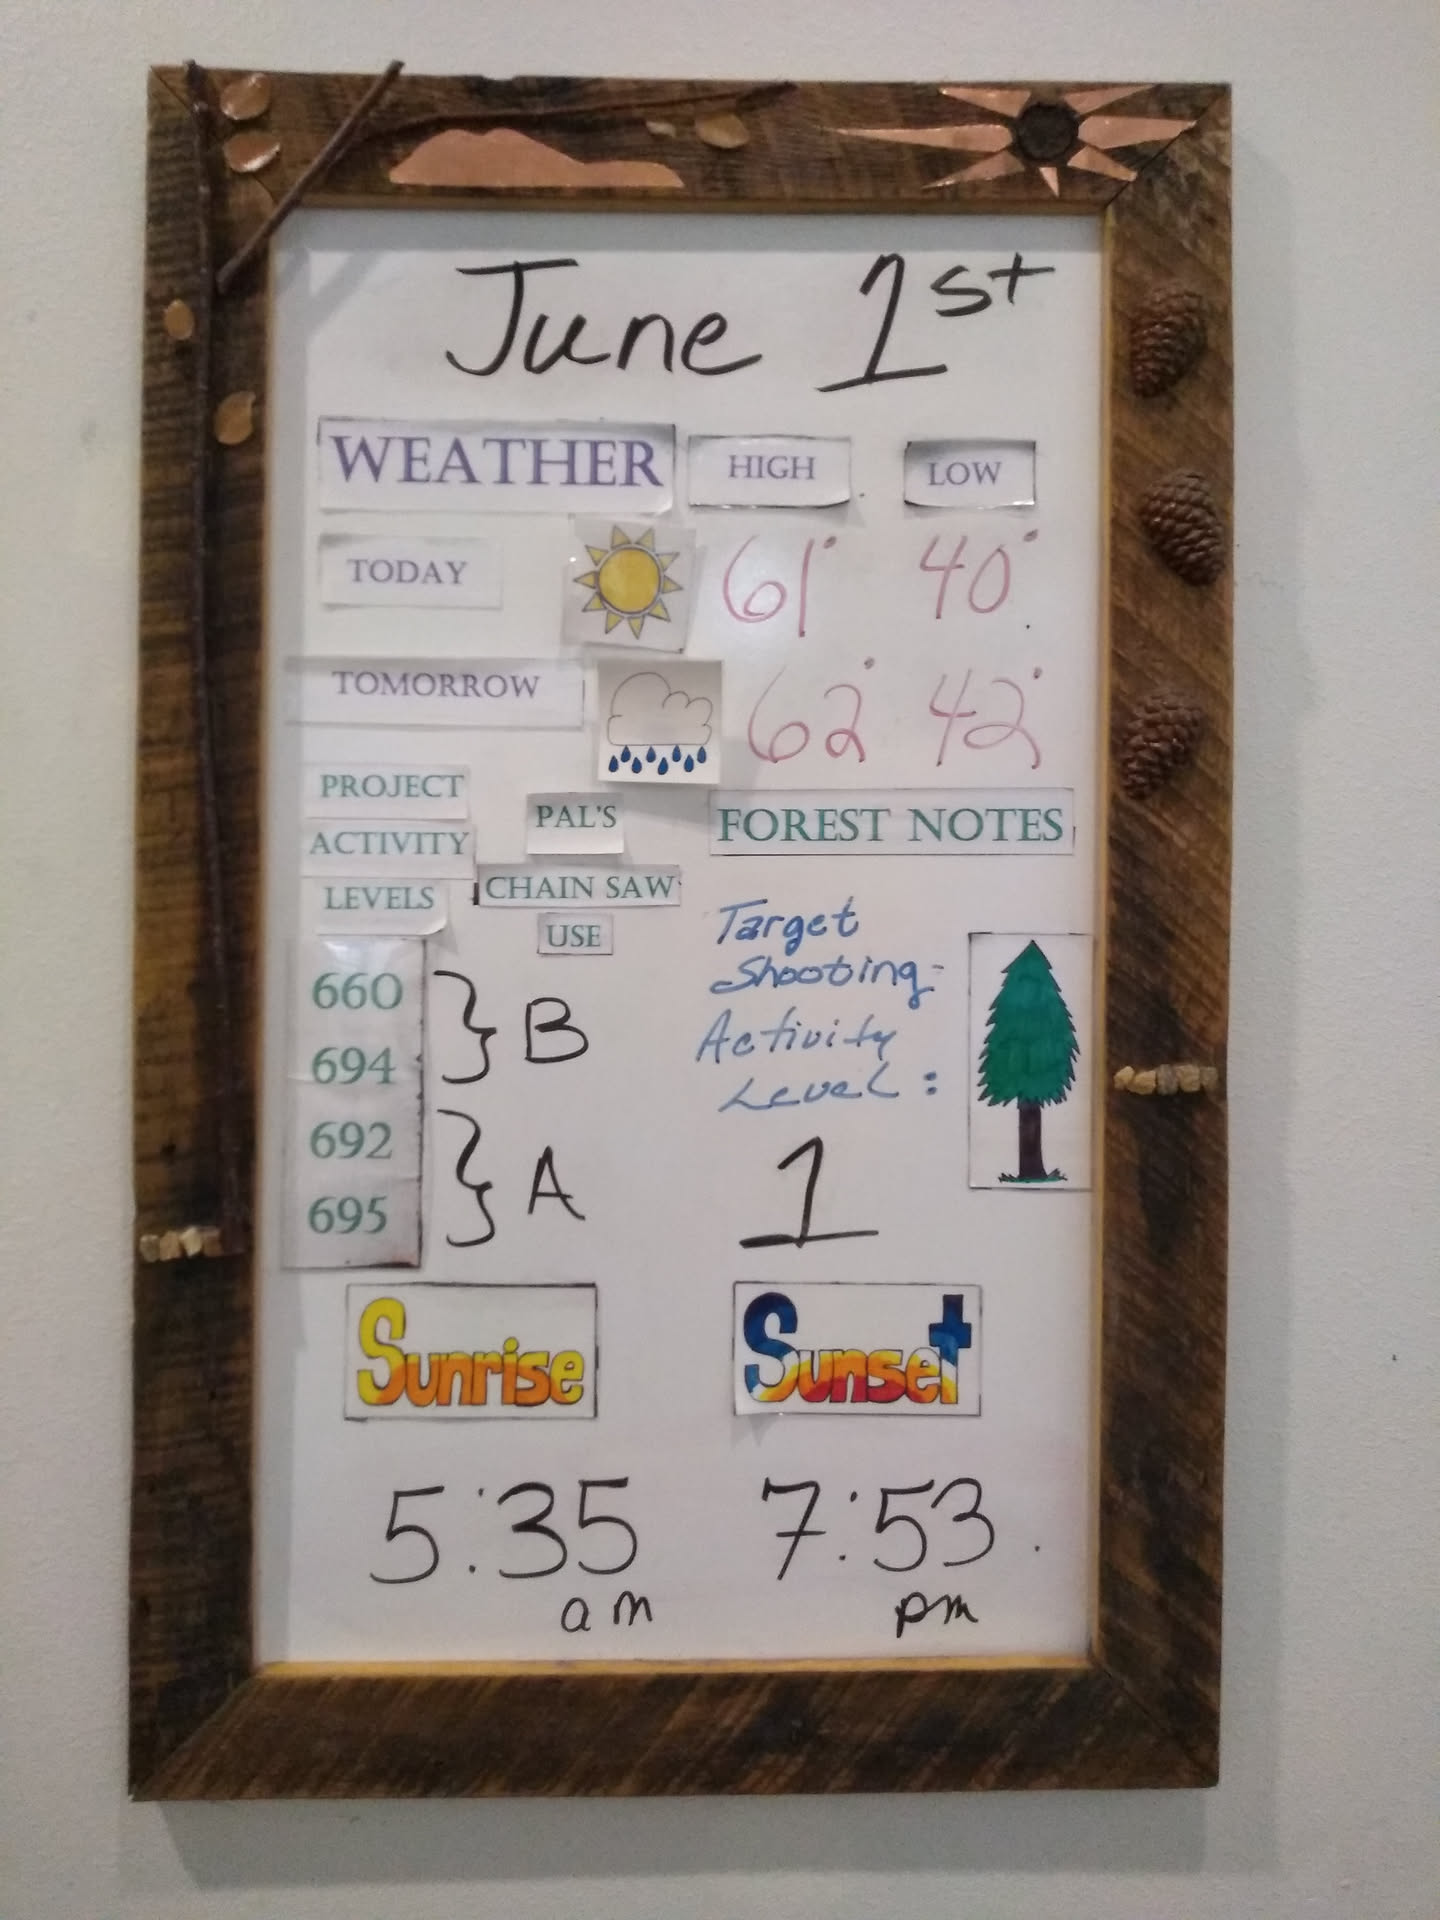 June 1st
WEATHER HIGH LOW
TODAY 61° 40°
TOMORROW 62° 42°
PROJECT
ACTIVITY
LEVELS
PAL'S
CHAIN SAW
USE
660
694 } B
692
695 } A
FOREST NOTES
Target
Shooting-
Activity
Level:
1
Sunrise Sunset
5:35 7:53
am pm